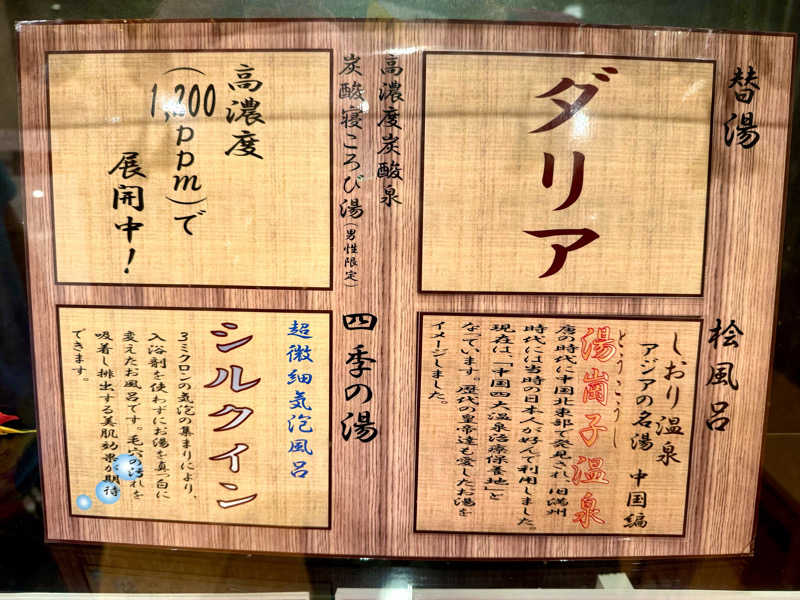 替湯
ダリア
桧風呂
しおり温泉
アジアの名湯 中国編
とうこうし
湯崗子温泉
唐の時代に中国北東部で発見され、旧満州
時代には当時の日本人が好んで利用しました。
現在は、「中国四大温泉治療保養地」と
なっています。歴代の皇帝達も愛したお湯を
イメージしました。
高濃度炭酸泉
炭酸寝ころび湯(男性限定)
高濃度
(1,200ppm)で
展開中!
四季の湯
超微細気泡風呂
シルクイン
3ミクロンの気泡の集まりにより、
入浴剤を使わずにお湯を真っ白に
変えたお風呂です。毛穴の汚れを
吸着し排出する美肌効果が期待
できます。